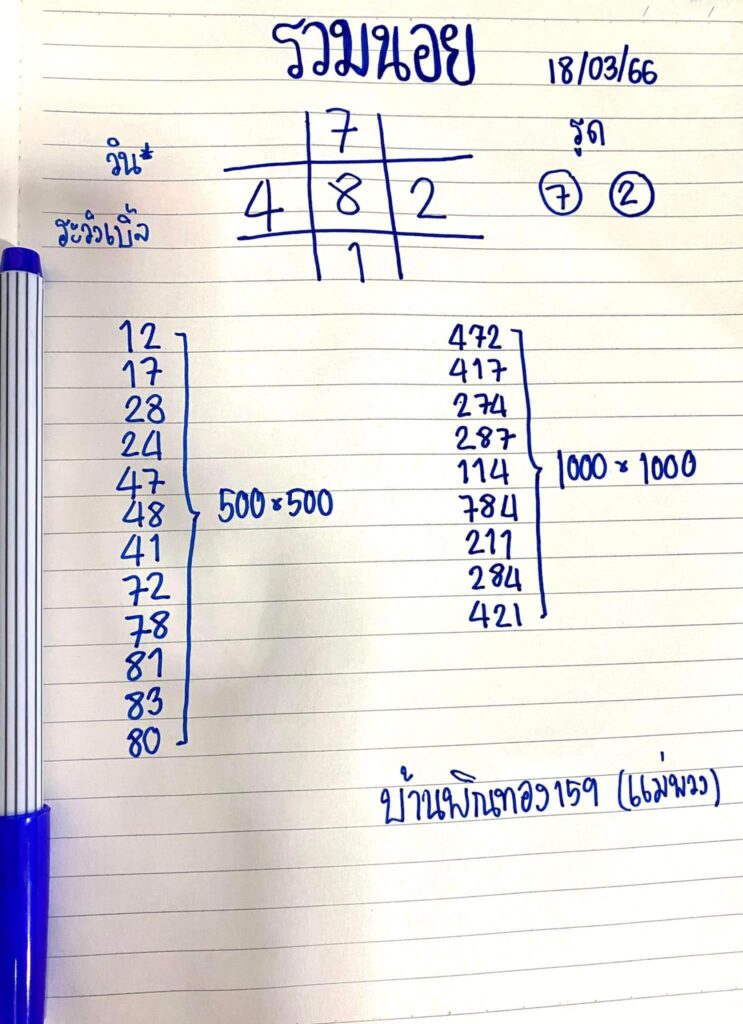 รวมนอย
18/03/66
วิน*
7
4 8 2
1
ระวังเบิ้ล
รูด
7 2
12
17
28
24
47
48
41
72
78
81
83
80
500×500
472
417
274
287
114
784
211
284
421
1000×1000
บ้านพิณทอง159 (แม่พวง)